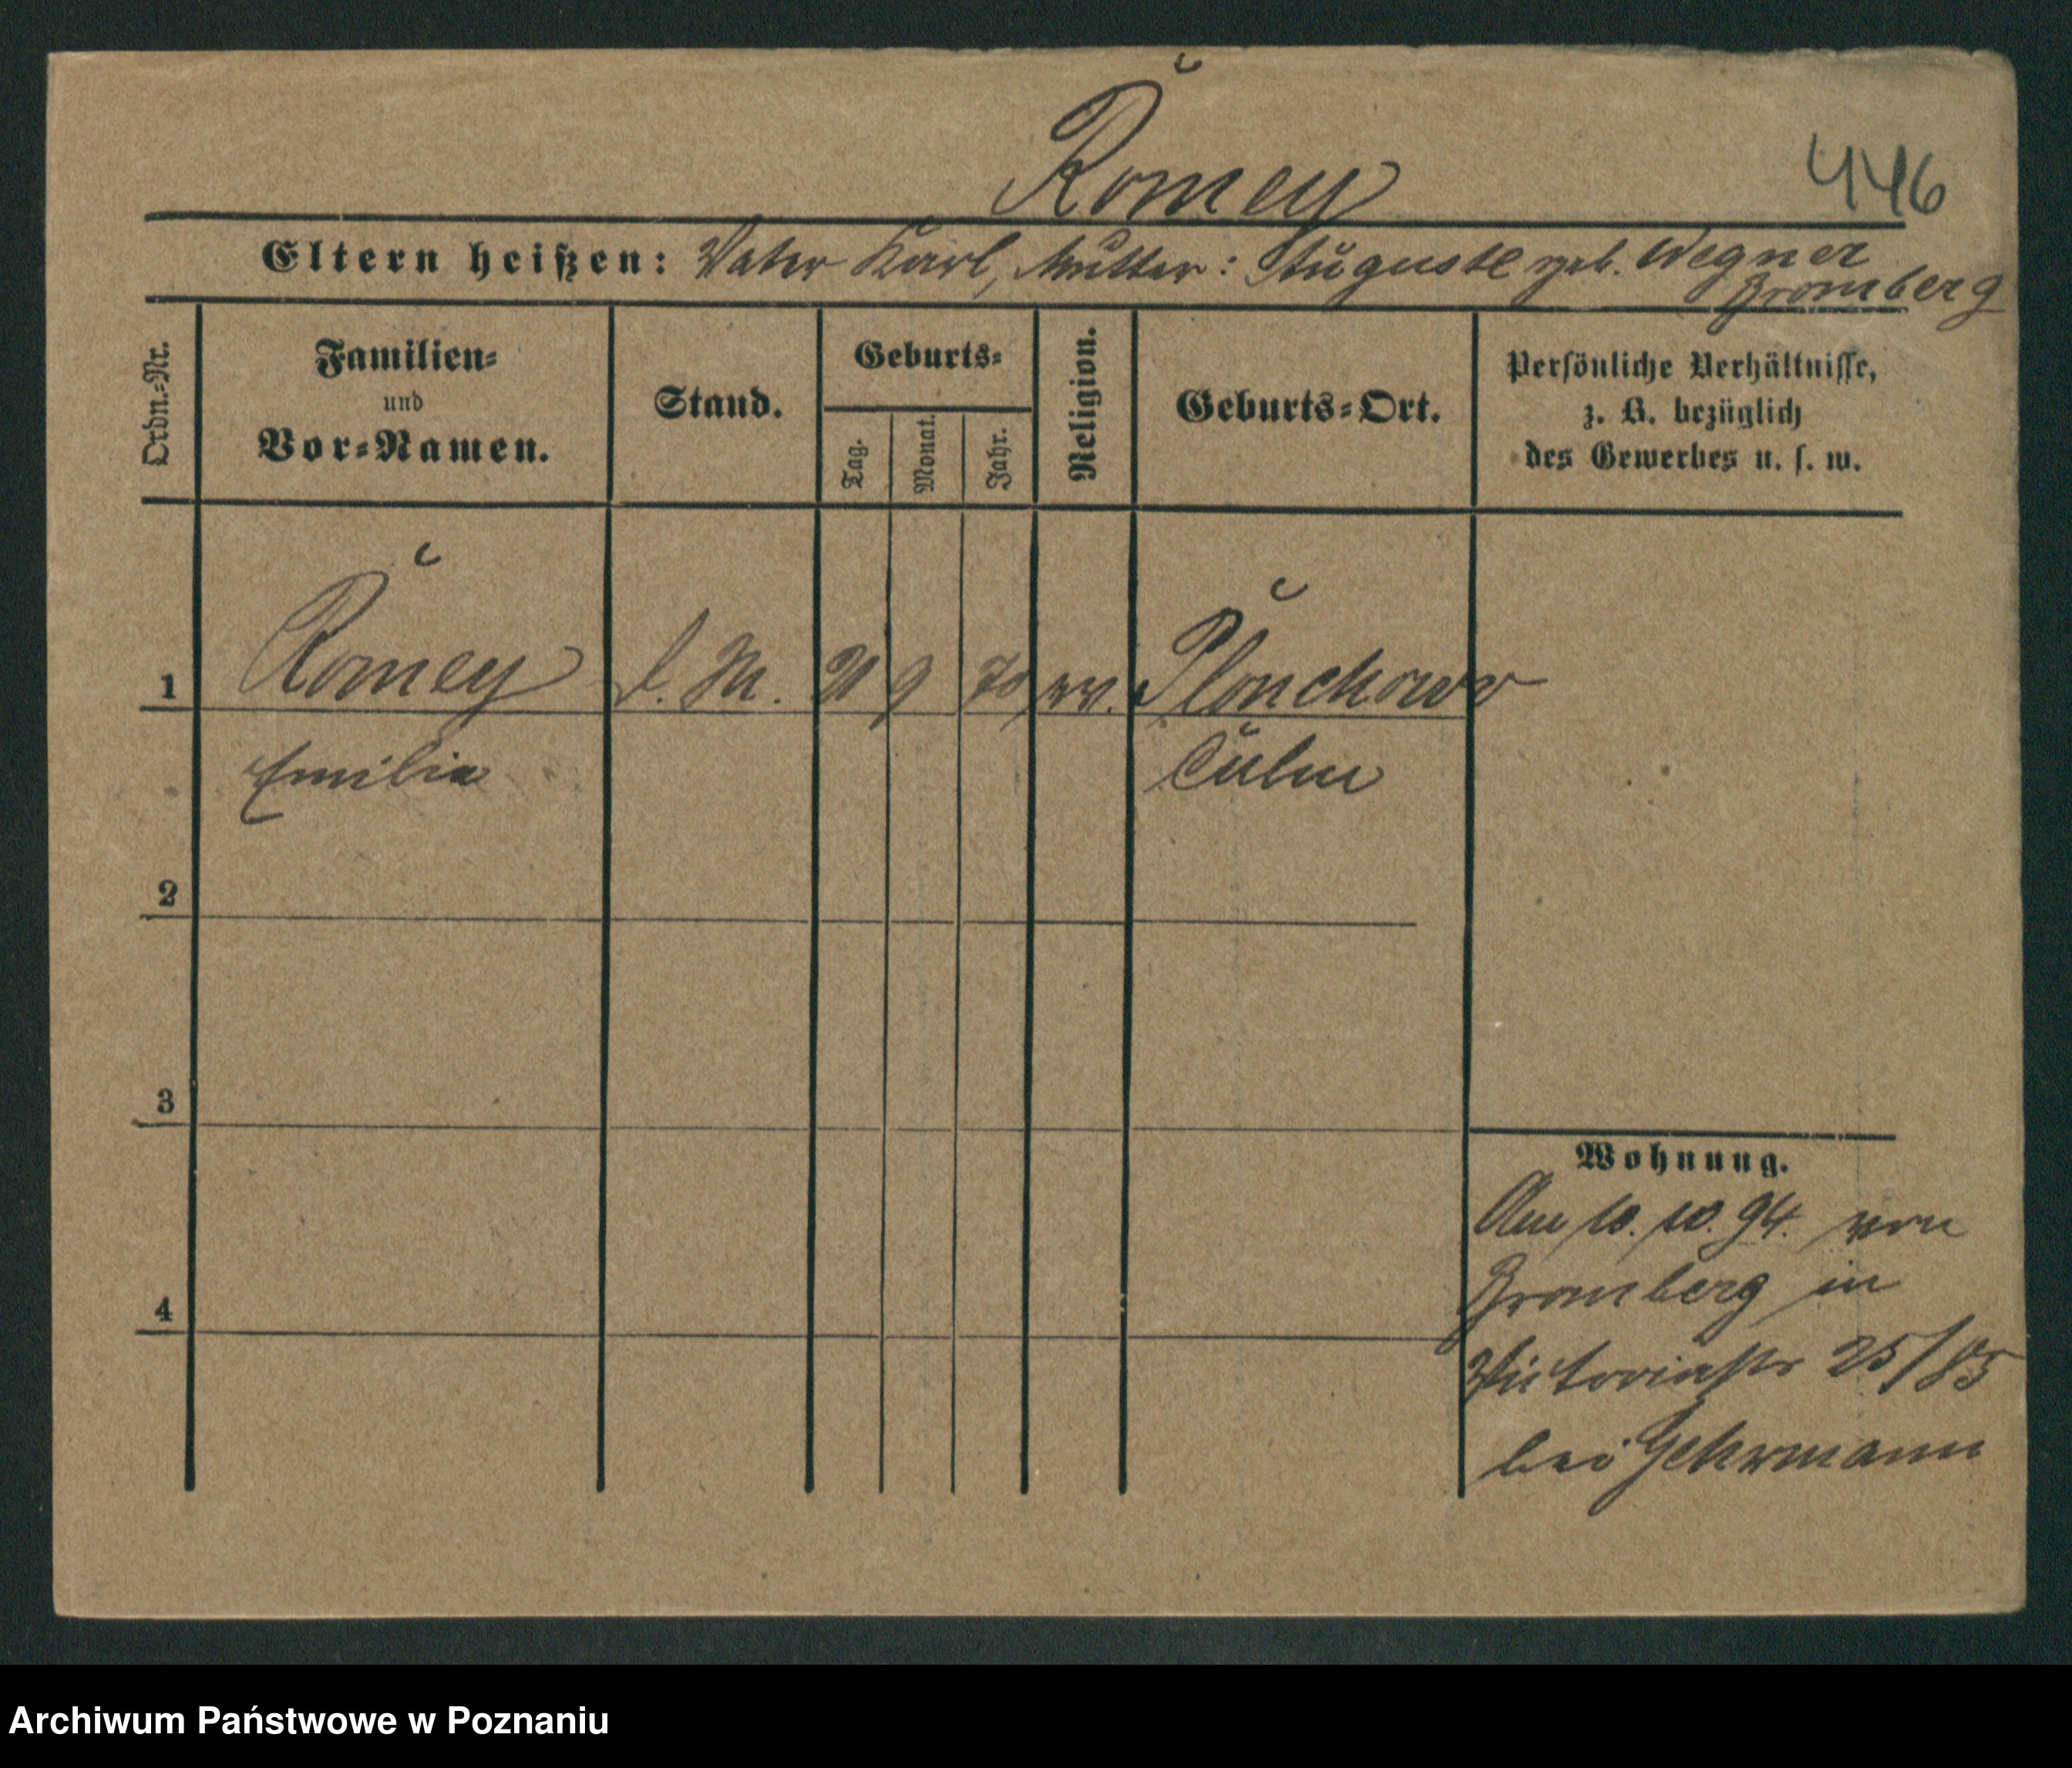 Romey
446
Eltern heißen: Vater Karl, Mutter: Auguste geb. Wegner
Bromberg
Ordn.-Nr.
Familien- und Vor-Namen.
Stand.
Geburts-
Tag.
Monat.
Jahr.
Religion.
Geburts-Ort.
Persönliche Verhältnisse,
z. B. bezüglich
des Gewerbes u. s. w.
1 Romey d. M. 21 9 70 ev. Plonchow
Emilie Culm
2
3
4
Wohnung.
Am 10. 10. 94. von
Bromberg in
Victoriastr 25/85
bei Gehrmann
Archiwum Państwowe w Poznaniu